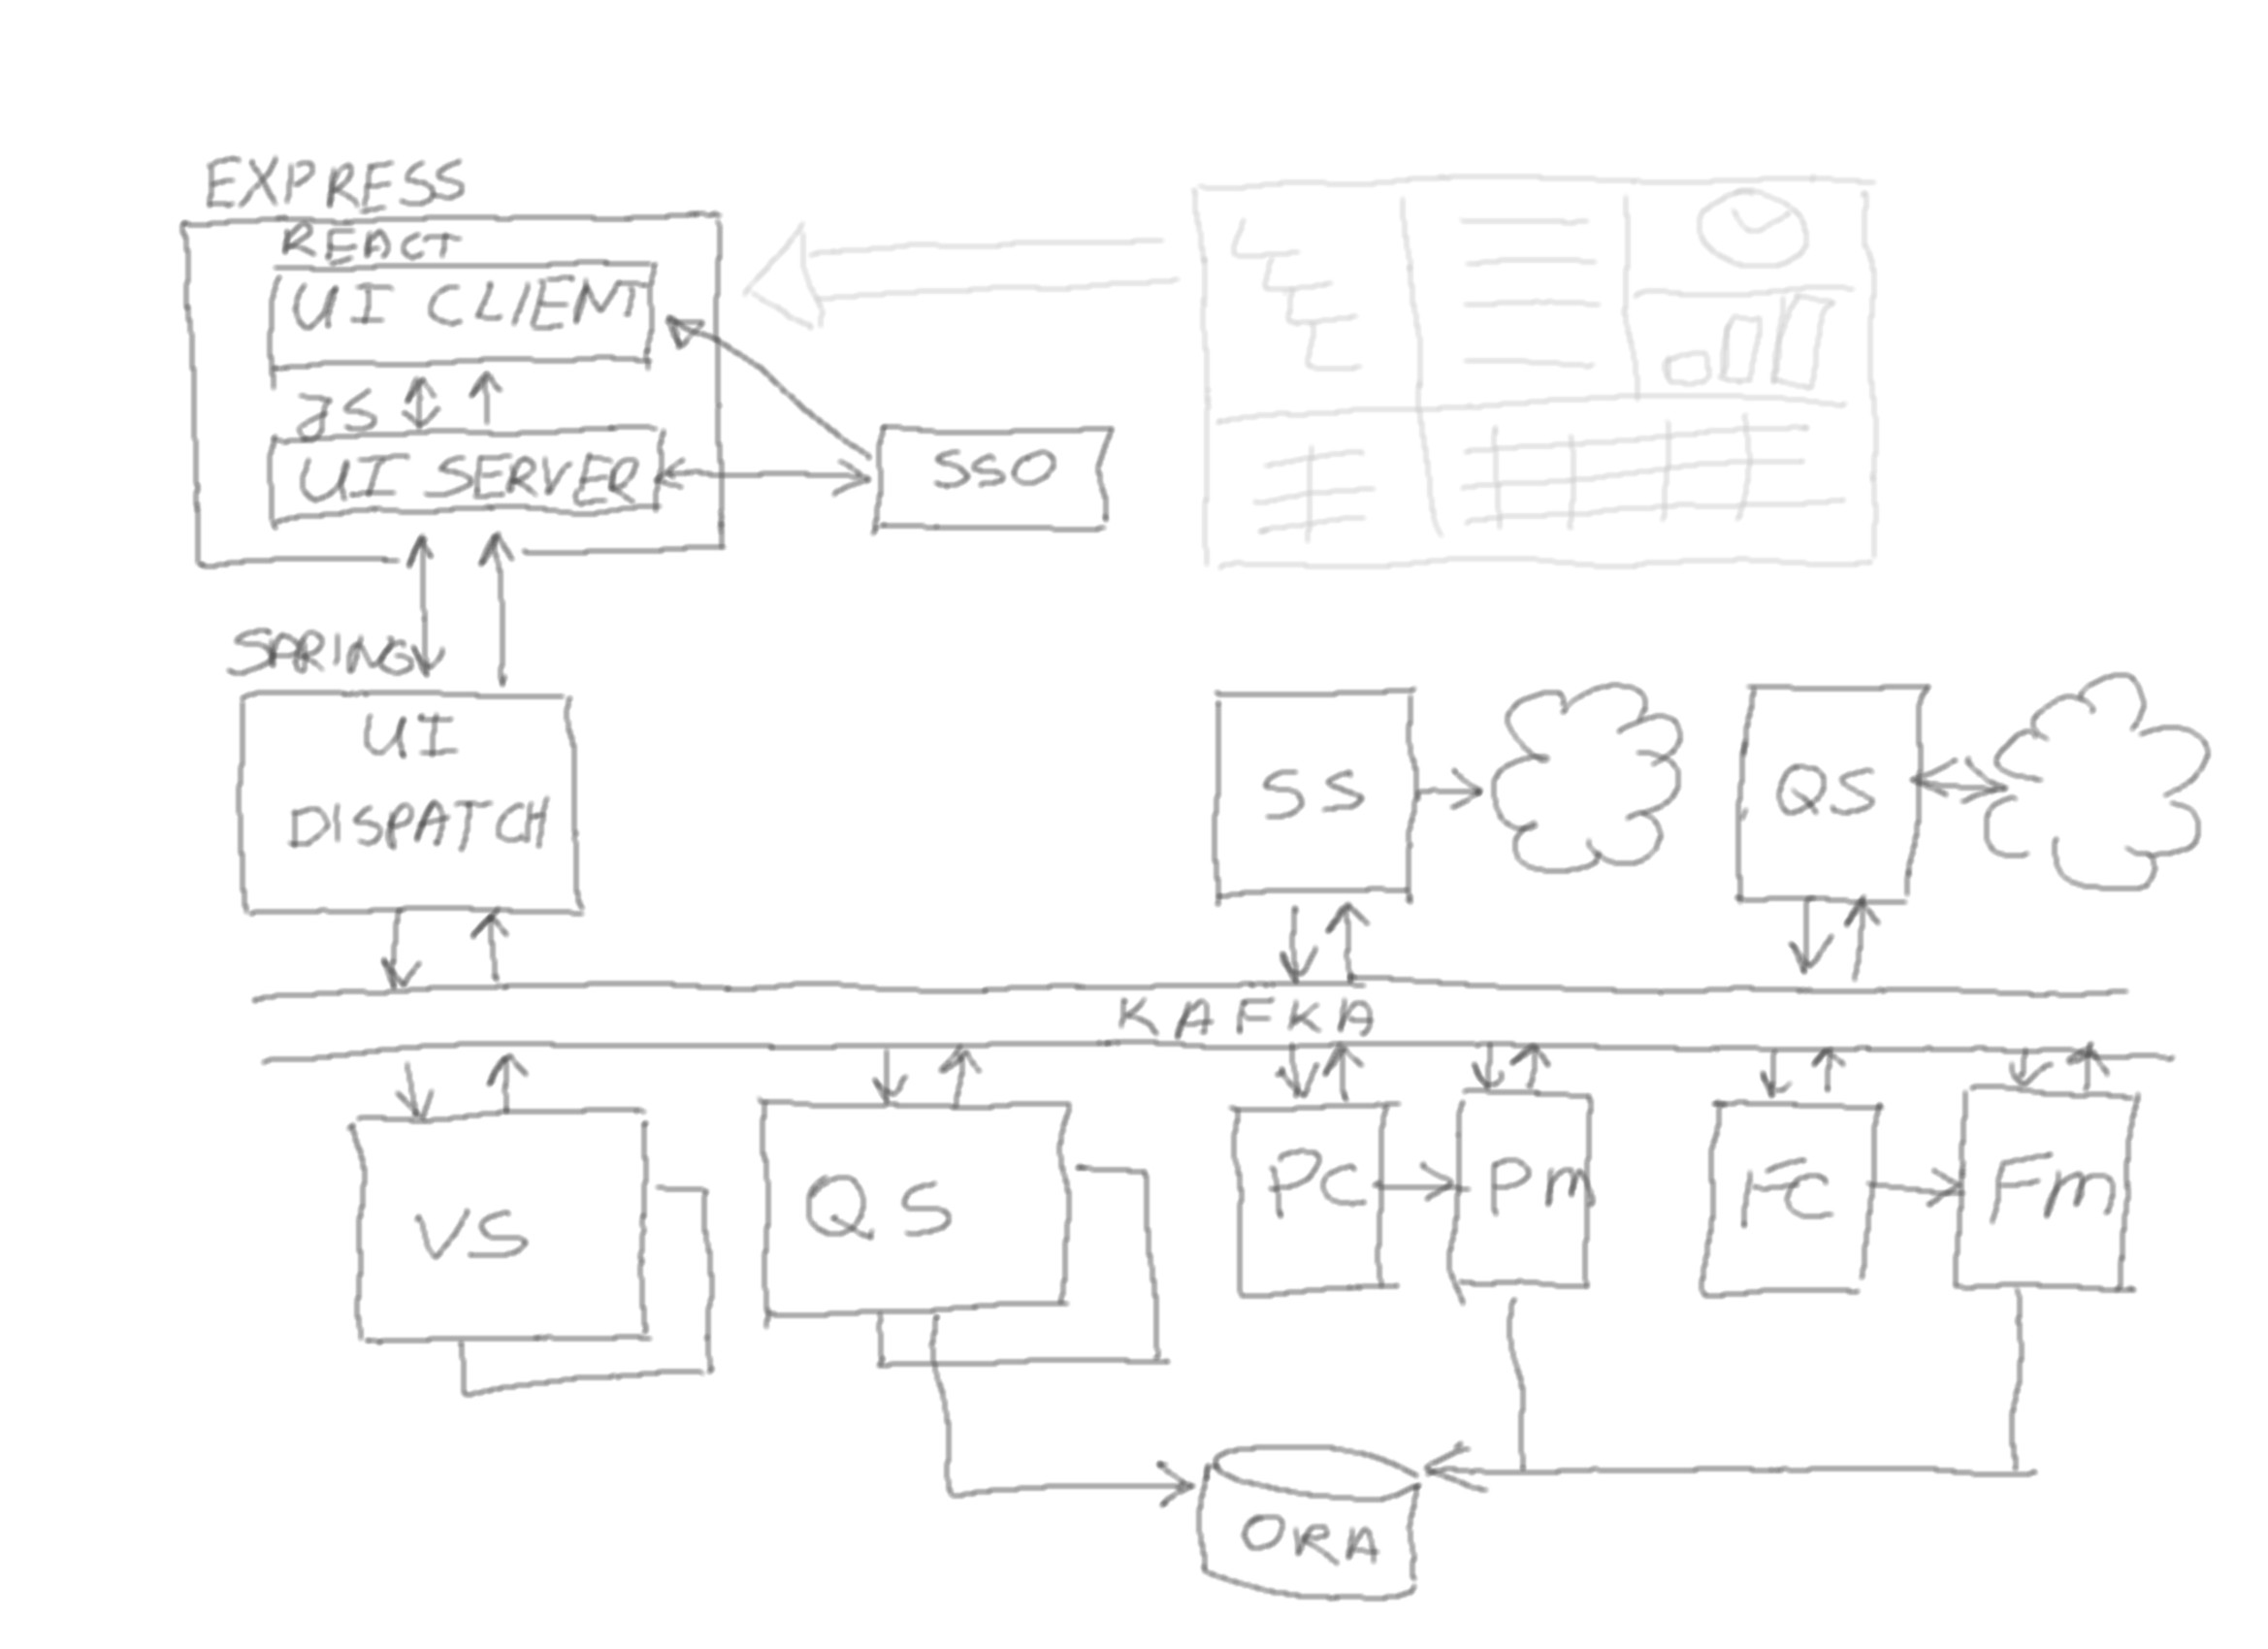 EXPRESS
REACT
UI CLIENT
JS
UI SERVER
SSO
SPRING
UI
DISPATCH
SS
QS
KAFKA
VS
QS
PC
PM
FC
FM
ORA